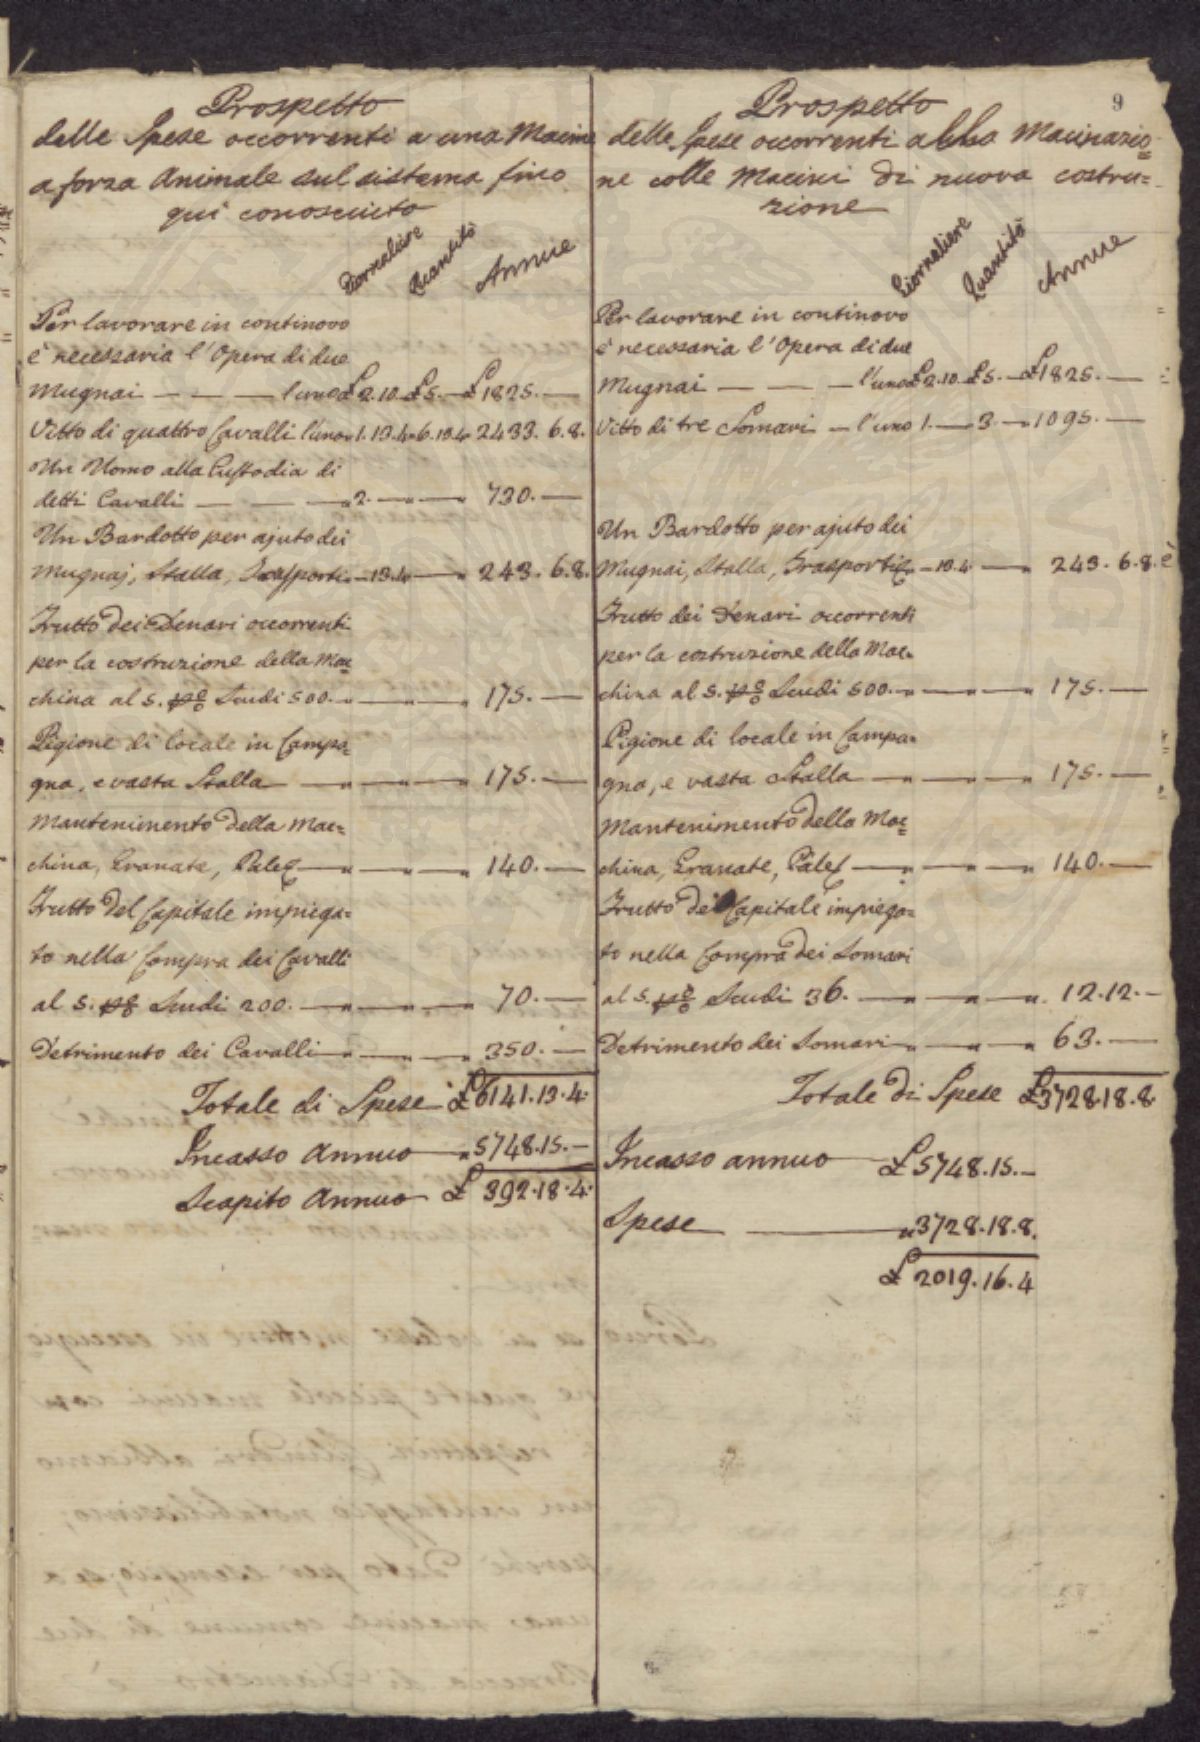 9
Prospetto
delle Spese occorrenti a una Macine
a forza Animale sul sistema fino
qui conosciuto
Giornaliere Quantità Annue
Per lavorare in continovo
è necessaria l'Opera di due
Mugnai — — — l'uno £2.10. £5. — £1825. —
Vitto di quattro Cavalli l'uno " 1.13.4 " 6.13.4 " 2433. 6. 8.
Un Uomo alla Custodia di
detti Cavalli — — — " 2. — " — " 730. —
Un Bardotto per ajuto dei
Mugnaj, Stalla, Trasporti " — 13.4 — " 243. 6. 8.
Frutto dei Denari occorrenti
per la costruzione della Mac=
china al 5. p% Scudi 500. — " — " — " 175. —
Pigione di locale in Campa=
gna, e vasta Stalla — " — " — " 175. —
Mantenimento della Mac=
china, Granate, Pale — " — " — " 140. —
Frutto del Capitale impiega=
to nella Compra dei Cavalli
al 5. p% Scudi 200. — " — " — " 70. —
Detrimento dei Cavalli " — " — " 350. —
Totale di Spese £6141.13.4.
Incasso Annuo — " 5748.15. —
Scapito Annuo — £ 392.18.4.
Prospetto
delle Spese occorrenti alla Macinazio=
ne colle Macini di nuova costru=
zione
Giornaliere Quantità Annue
Per lavorare in continovo
è necessaria l'Opera di due
Mugnai — — — l'uno £2.10. £5. — £1825. —
Vitto di tre Somari — l'uno 1. — 3. — " 1095. —
Un Bardotto per ajuto dei
Mugnai, Stalla, Trasporti " — 13.4 — " 243. 6. 8.
Frutto dei Denari occorrenti
per la costruzione della Mac=
china al 5. p% Scudi 500. " — " — " 175. —
Pigione di locale in Campa=
gna, e vasta Stalla — " — " — " 175. —
Mantenimento della Mac=
china, Granate, Pale — " — " — " 140. —
Frutto del Capitale impiega=
to nella Compra dei Somari
al 5. p% Scudi 36. — " — " — " 12.12. —
Detrimento dei Somari " — " — " 63. —
Totale di Spese £3728.18.8.
Incasso annuo — £5748.15. —
Spese — " 3728.18.8.
£ 2019.16.4